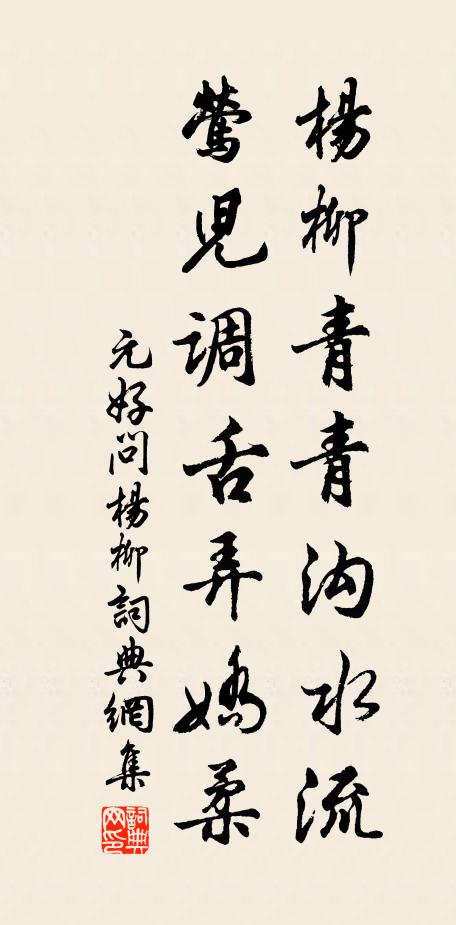 楊柳青青沟水流
鶯児調舌弄嬌柔
元好問楊柳詞典網集
詞典網印